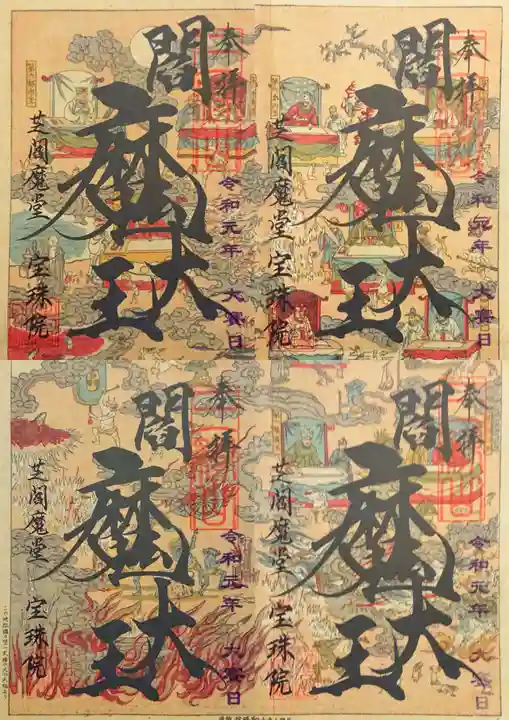 奉拝
閻魔大王
令和元年 大賽日
芝閻魔堂 宝珠院
奉拝
閻魔大王
令和元年 大賽日
芝閻魔堂 宝珠院
奉拝
閻魔大王
令和元年 大賽日
芝閻魔堂 宝珠院
奉拝
閻魔大王
令和元年 大賽日
芝閻魔堂 宝珠院